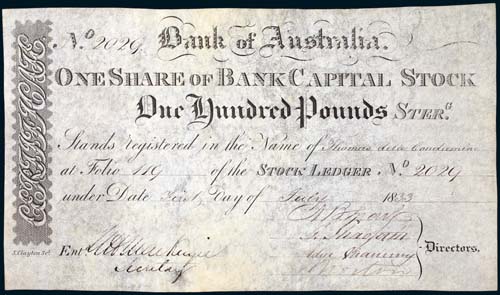 CERTIFICATE
No. 2029. Bank of Australia.
ONE SHARE OF BANK CAPITAL STOCK
One Hundred Pounds STERG.
Stands registered in the Name of Thomas de la Condamine
at Folio 119 of the STOCK LEDGER, No. 2029
under Date First Day of July 1833
Directors.
Entd
Secretary
S. Clayton Sct.